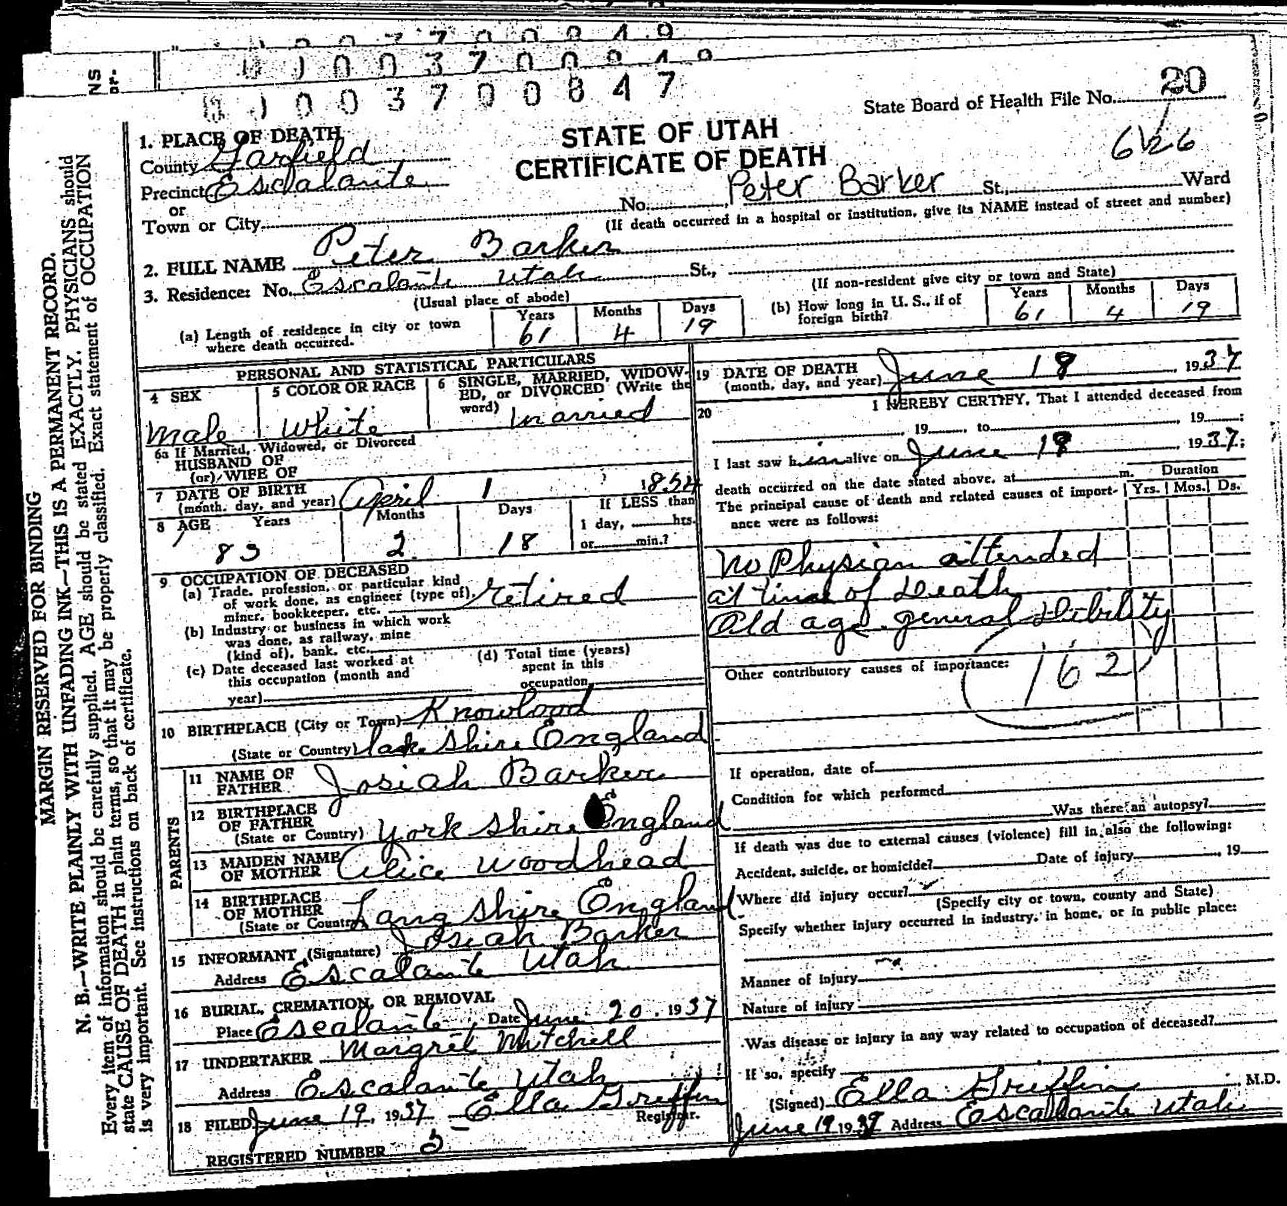 0 0 3 7 0 0 8 4 9
0 0 3 7 0 0 8 4 7
State Board of Health File No. 20
6126
STATE OF UTAH
CERTIFICATE OF DEATH
1. PLACE OF DEATH
County Garfield
Precinct Escalante
or
Town or City
No. Peter Barker St., Ward
(If death occurred in a hospital or institution, give its NAME instead of street and number)
2. FULL NAME Peter Barker
3. Residence: No. Escalante Utah St.,
(Usual place of abode)
(If non-resident give city or town and State)
(a) Length of residence in city or town where death occurred. Years 61 Months 4 Days 19
(b) How long in U. S., if of foreign birth? Years 61 Months 4 Days 19
PERSONAL AND STATISTICAL PARTICULARS
4 SEX Male
5 COLOR OR RACE White
6 SINGLE, MARRIED, WIDOWED, or DIVORCED (Write the word) Married
6a If Married, Widowed, or Divorced
HUSBAND OF
(or) WIFE OF
7 DATE OF BIRTH
(month, day, and year) April 1 1854
8 AGE Years 83 Months 2 Days 18
If LESS than
1 day, hrs.
or min.?
9 OCCUPATION OF DECEASED
(a) Trade, profession, or particular kind
of work done, as engineer (type of), retired
miner, bookkeeper, etc.
(b) Industry or business in which work
was done, as railway, mine
(kind of), bank, etc.
(c) Date deceased last worked at
this occupation (month and
year)
(d) Total time (years)
spent in this
occupation
10 BIRTHPLACE (City or Town) Knowlood
(State or Country) England
PARENTS
11 NAME OF
FATHER Josiah Barker
12 BIRTHPLACE
OF FATHER
(State or Country) York Shire England
13 MAIDEN NAME
OF MOTHER Alice Woodhead
14 BIRTHPLACE
OF MOTHER
(State or Country) Lang Shire England
15 INFORMANT (Signature) Josiah Barker
Address Escalante Utah
16 BURIAL, CREMATION, OR REMOVAL
Place Escalante Date June 20, 1937
17 UNDERTAKER Margret Mitchell
Address Escalante Utah
18 FILED June 19, 1937 Ella Griffin
Registrar.
REGISTERED NUMBER 5
19 DATE OF DEATH
(month, day, and year) June 18 1937
20 I HEREBY CERTIFY, That I attended deceased from
19 , to , 19 ;
I last saw him alive on June 18 1937;
death occurred on the date stated above, at m.
The principal cause of death and related causes of importance were as follows:
Duration
Yrs. Mos. Ds.
No Physian attended
at time of Death
Old age general debility
Other contributory causes of importance:
162
If operation, date of
Condition for which performed
Was there an autopsy?
If death was due to external causes (violence) fill in also the following:
Accident, suicide, or homicide? Date of injury , 19
Where did injury occur?
(Specify city or town, county and State)
Specify whether injury occurred in industry, in home, or in public place:
Manner of injury
Nature of injury
Was disease or injury in any way related to occupation of deceased?
If so, specify
(Signed) Ella Griffin M.D.
June 19 1937 Address Escalante Utah
MARGIN RESERVED FOR BINDING
N. B.—WRITE PLAINLY WITH UNFADING INK—THIS IS A PERMANENT RECORD.
Every item of information should be carefully supplied. AGE should be stated EXACTLY. PHYSICIANS should
state CAUSE OF DEATH in plain terms, so that it may be properly classified. Exact statement of OCCUPATION
is very important. See instructions on back of certificate.